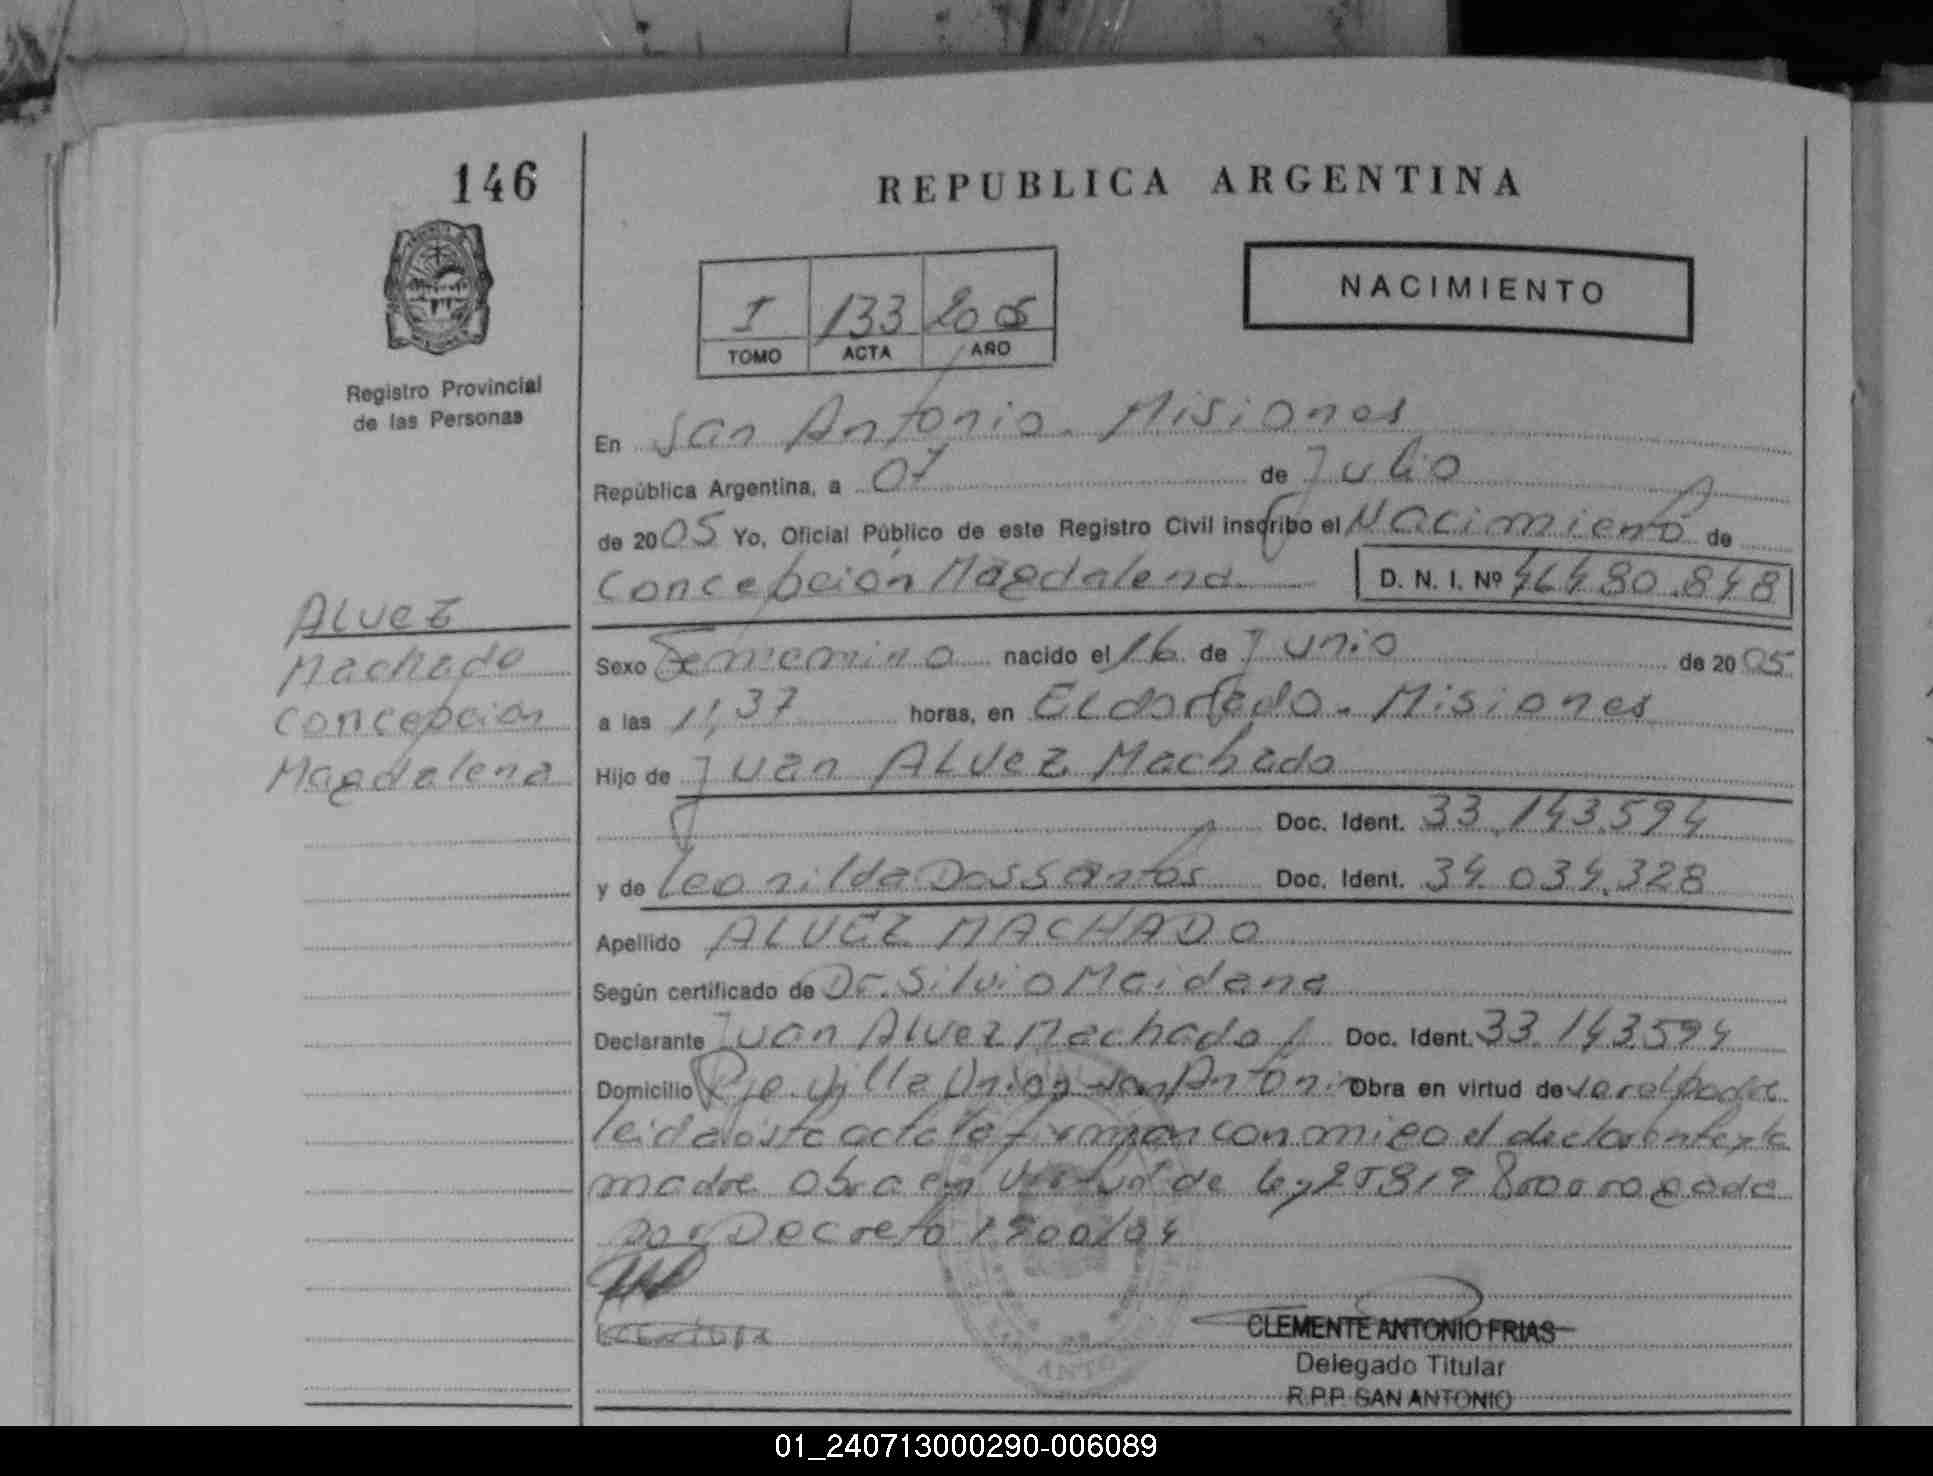 146
REPUBLICA ARGENTINA
NACIMIENTO
I 133 2005
TOMO ACTA AÑO
Registro Provincial
de las Personas
En San Antonio. Misiones
República Argentina, a 07 de Julio
de 2005 Yo, Oficial Público de este Registro Civil inscribo el Nacimiento de
Concepción Magdalena D. N. I. Nº 46480.848
ALVEZ
Machado
Concepción
Magdalena
Sexo Femenino nacido el 16 de Junio de 2005
a las 11,37 horas, en ELdorado. Misiones
Hijo de Juan ALVEZ Machado
Doc. Ident. 33.143.594
y de Leonilda Dos Santos Doc. Ident. 34.034.328
Apellido ALVEZ MACHADO
Según certificado de Dr. Silvio Maidana
Declarante Juan Alvez Machado Doc. Ident. 33.143.594
Domicilio Pje Villa Union San Antonio Obra en virtud de ser el padre
leida esta acta la firman conmigo el declarante y la
madre Obra en virtud de Ley 25819 Prorrogada
por Decreto 1900/04
CLEMENTE ANTONIO FRIAS
Delegado Titular
R.P.P. SAN ANTONIO
01_240713000290-006089